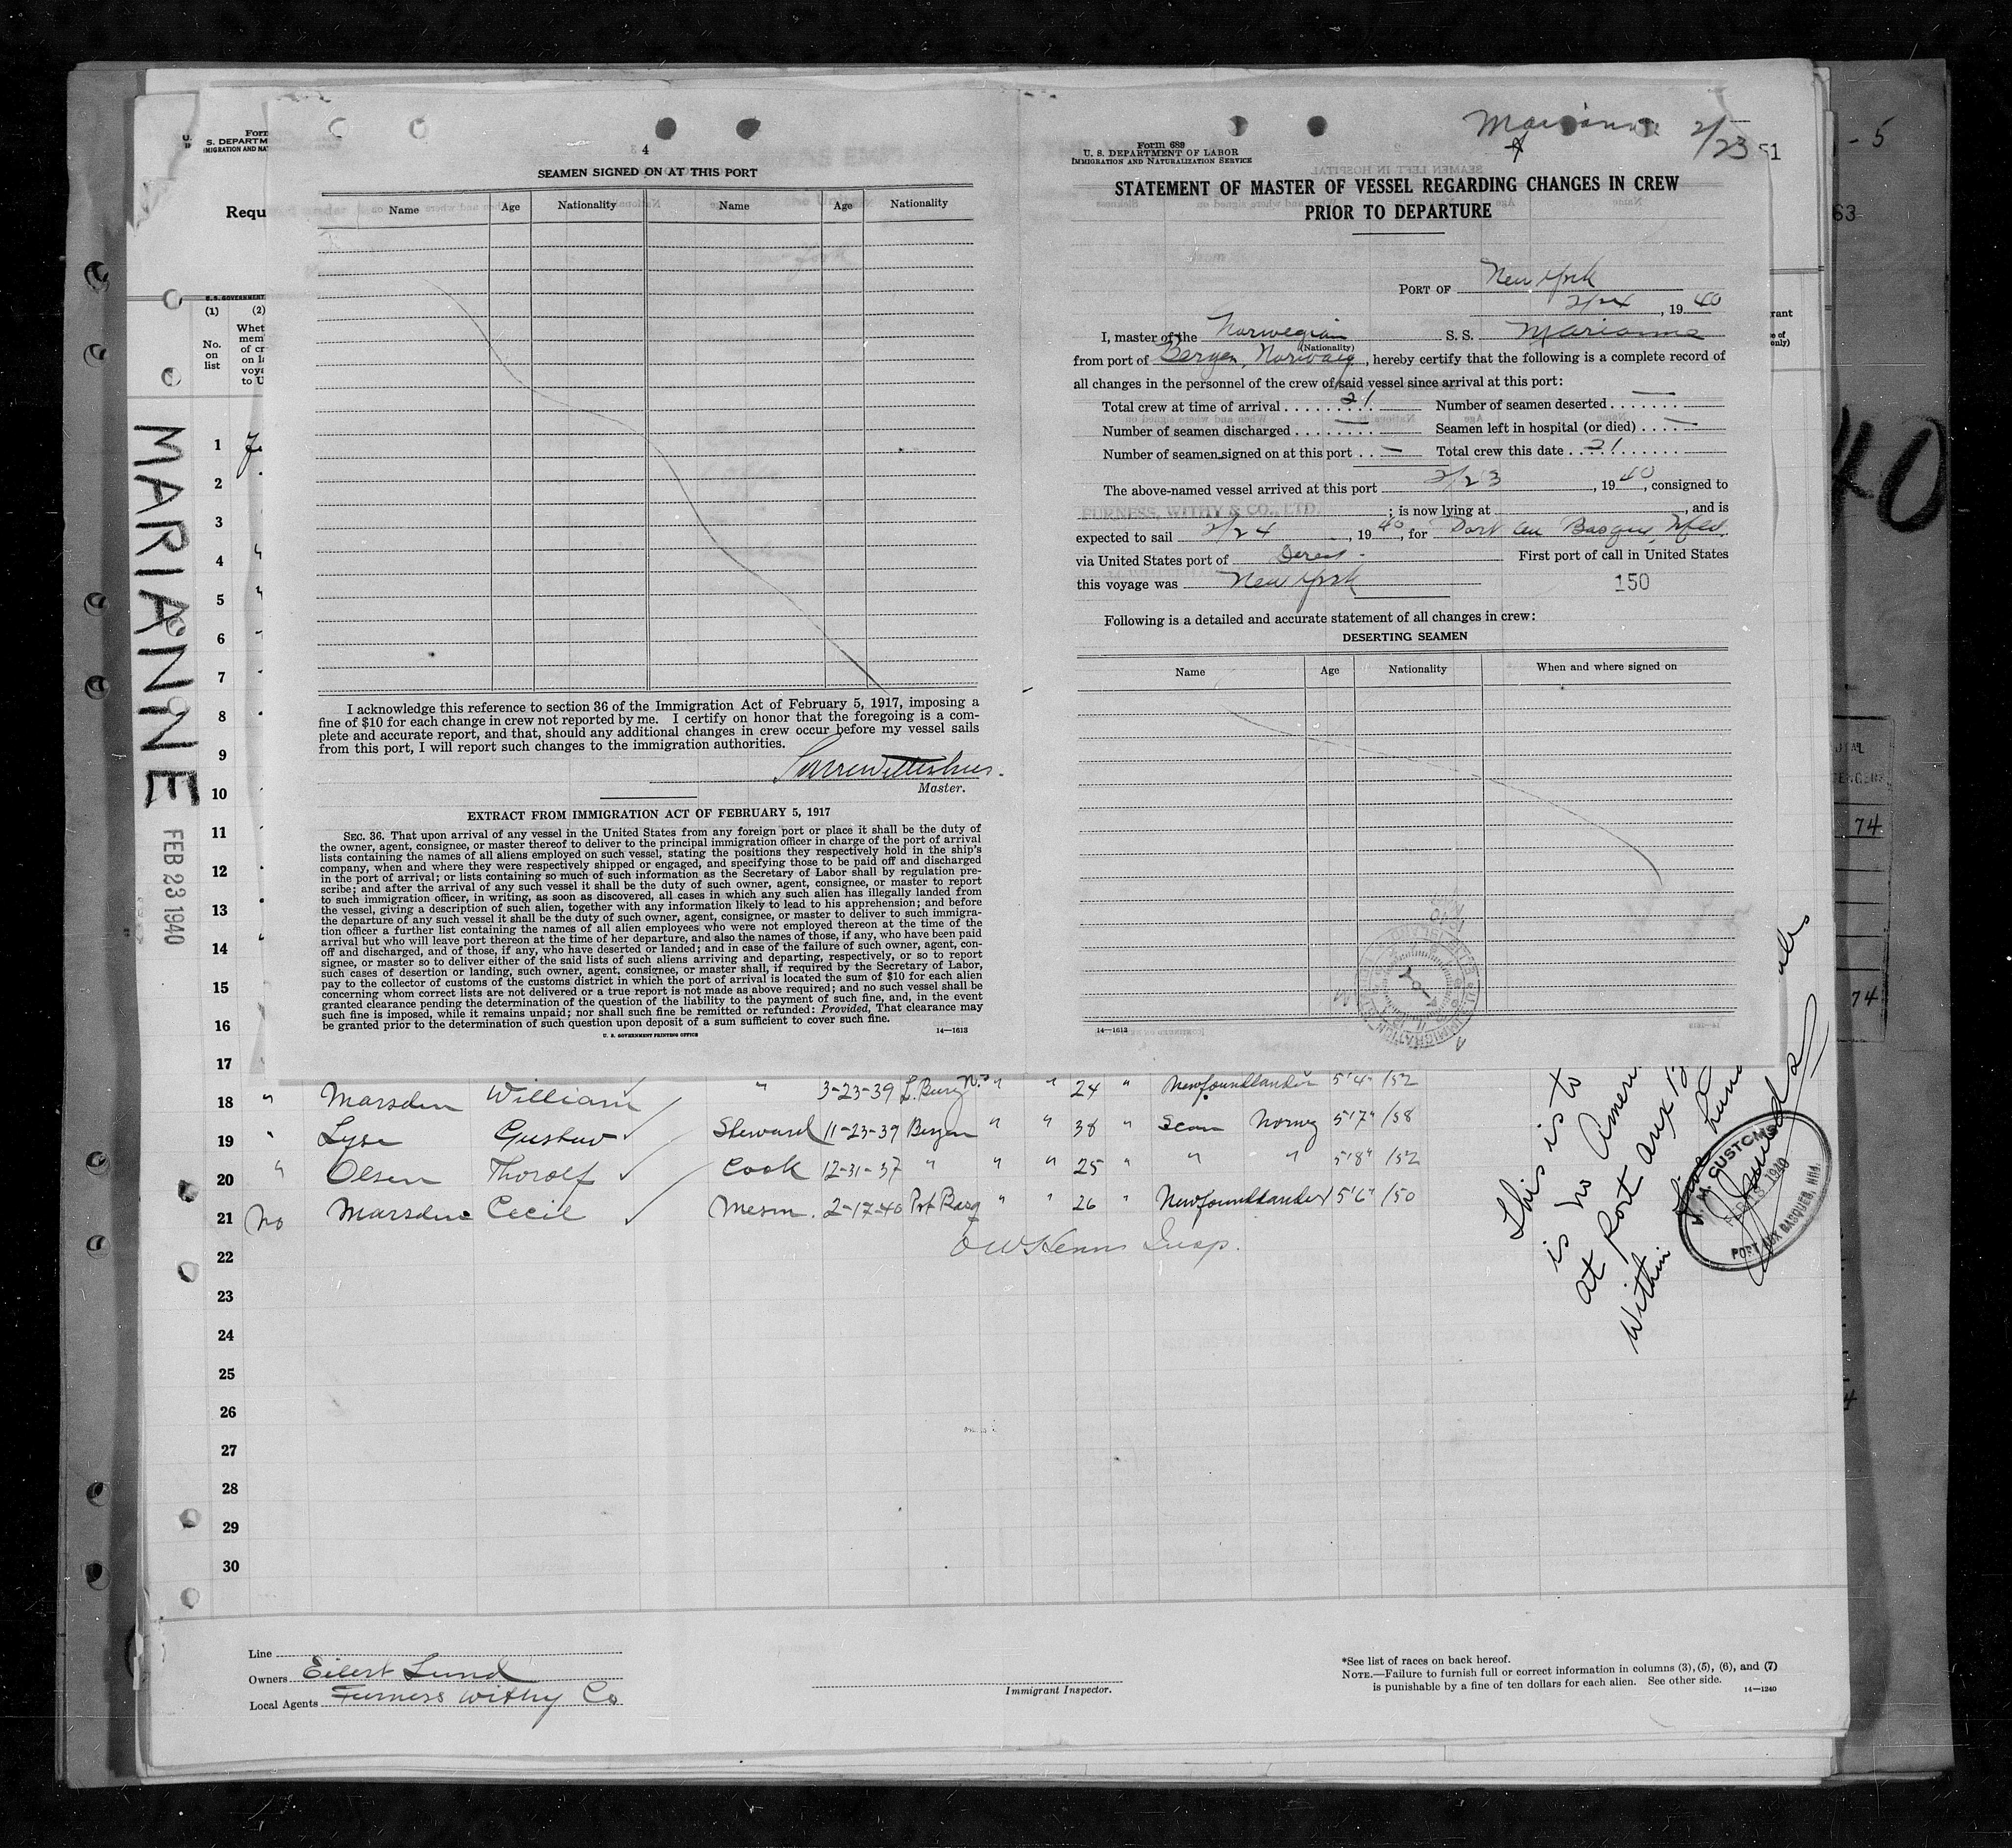 4
SEAMEN SIGNED ON AT THIS PORT
Name Age Nationality Name Age Nationality
I acknowledge this reference to section 36 of the Immigration Act of February 5, 1917, imposing a
fine of $10 for each change in crew not reported by me. I certify on honor that the foregoing is a com-
plete and accurate report, and that, should any additional changes in crew occur before my vessel sails
from this port, I will report such changes to the immigration authorities.
Master.
EXTRACT FROM IMMIGRATION ACT OF FEBRUARY 5, 1917
SEC. 36. That upon arrival of any vessel in the United States from any foreign port or place it shall be the duty of
the owner, agent, consignee, or master thereof to deliver to the principal immigration officer in charge of the port of arrival
lists containing the names of all aliens employed on such vessel, stating the positions they respectively hold in the ship's
company, when and where they were respectively shipped or engaged, and specifying those to be paid off and discharged
in the port of arrival; or lists containing so much of such information as the Secretary of Labor shall by regulation pre-
scribe; and after the arrival of any such vessel it shall be the duty of such owner, agent, consignee, or master to report
to such immigration officer, in writing, as soon as discovered, all cases in which any such alien has illegally landed from
the vessel, giving a description of such alien, together with any information likely to lead to his apprehension; and before
the departure of any such vessel it shall be the duty of such owner, agent, consignee, or master to deliver to such immigra-
tion officer a further list containing the names of all alien employees who were not employed thereon at the time of the
arrival but who will leave port thereon at the time of her departure, and also the names of those, if any, who have been paid
off and discharged, and of those, if any, who have deserted or landed; and in case of the failure of such owner, agent, con-
signee, or master so to deliver either of the said lists of such aliens arriving and departing, respectively, or so to report
such cases of desertion or landing, such owner, agent, consignee, or master shall, if required by the Secretary of Labor,
pay to the collector of customs of the customs district in which the port of arrival is located the sum of $10 for each alien
concerning whom correct lists are not delivered or a true report is not made as above required; and no such vessel shall be
granted clearance pending the determination of the question of the liability to the payment of such fine, and, in the event
such fine is imposed, while it remains unpaid; nor shall such fine be remitted or refunded: Provided, That clearance may
be granted prior to the determination of such question upon deposit of a sum sufficient to cover such fine.
U. S. GOVERNMENT PRINTING OFFICE 14—1613
Marianne 2/23
51
Form 689
U. S. DEPARTMENT OF LABOR
IMMIGRATION AND NATURALIZATION SERVICE
STATEMENT OF MASTER OF VESSEL REGARDING CHANGES IN CREW
PRIOR TO DEPARTURE
PORT OF New York
2/24, 1940
I, master of the Norwegian S. S. Marianne
(Nationality)
from port of Bergen, Norway, hereby certify that the following is a complete record of
all changes in the personnel of the crew of said vessel since arrival at this port:
Total crew at time of arrival 21 Number of seamen deserted —
Number of seamen discharged — Seamen left in hospital (or died) —
Number of seamen signed on at this port — Total crew this date 21
The above-named vessel arrived at this port 2/23, 1940, consigned to
FURNESS, WITHY & CO., LTD. ; is now lying at , and is
expected to sail 2/24, 1940, for Port au Basque, Nfld.
via United States port of Direct. First port of call in United States
this voyage was New York
150
Following is a detailed and accurate statement of all changes in crew:
DESERTING SEAMEN
Name Age Nationality When and where signed on
14—1613
Form
U. S. DEPARTM
IMMIGRATION AND NAT
Requ
U. S. GOVERNMENT
(1) (2)
No. on list
Whet
mem
of cr
on l
voya
to U
MARIANNE
FEB 23 1940
1
2
3
4
5
6
7
8
9
10
11
12
13
14
15
16
17
18 " Marsden William " 3-23-39 " " 24 " Newfoundlander 5'4" 152
19 " Lyse Gustav Steward 11-23-39 Bergen " " 38 " Scan Norweg 5'7" 158
20 " Olsen Thorolf Cook 12-31-37 " " " 25 " " " 5'8" 152
21 No Marsden Cecil Mesm. 2-17-40 Prt Basq " " 26 " Newfoundlander 5'6" 150
22
23
24
25
26
27
28
29
30
This is to
is no Ameri
at Port aux B
within
H. M. CUSTOMS
1940
PORT AUX BASQUES, NFD.
40
- 5
63
74
74
Line
Owners Eilert Lund
Local Agents Furness Withy Co
Immigrant Inspector.
*See list of races on back hereof.
NOTE.—Failure to furnish full or correct information in columns (3), (5), (6), and (7)
is punishable by a fine of ten dollars for each alien. See other side.
14—1240